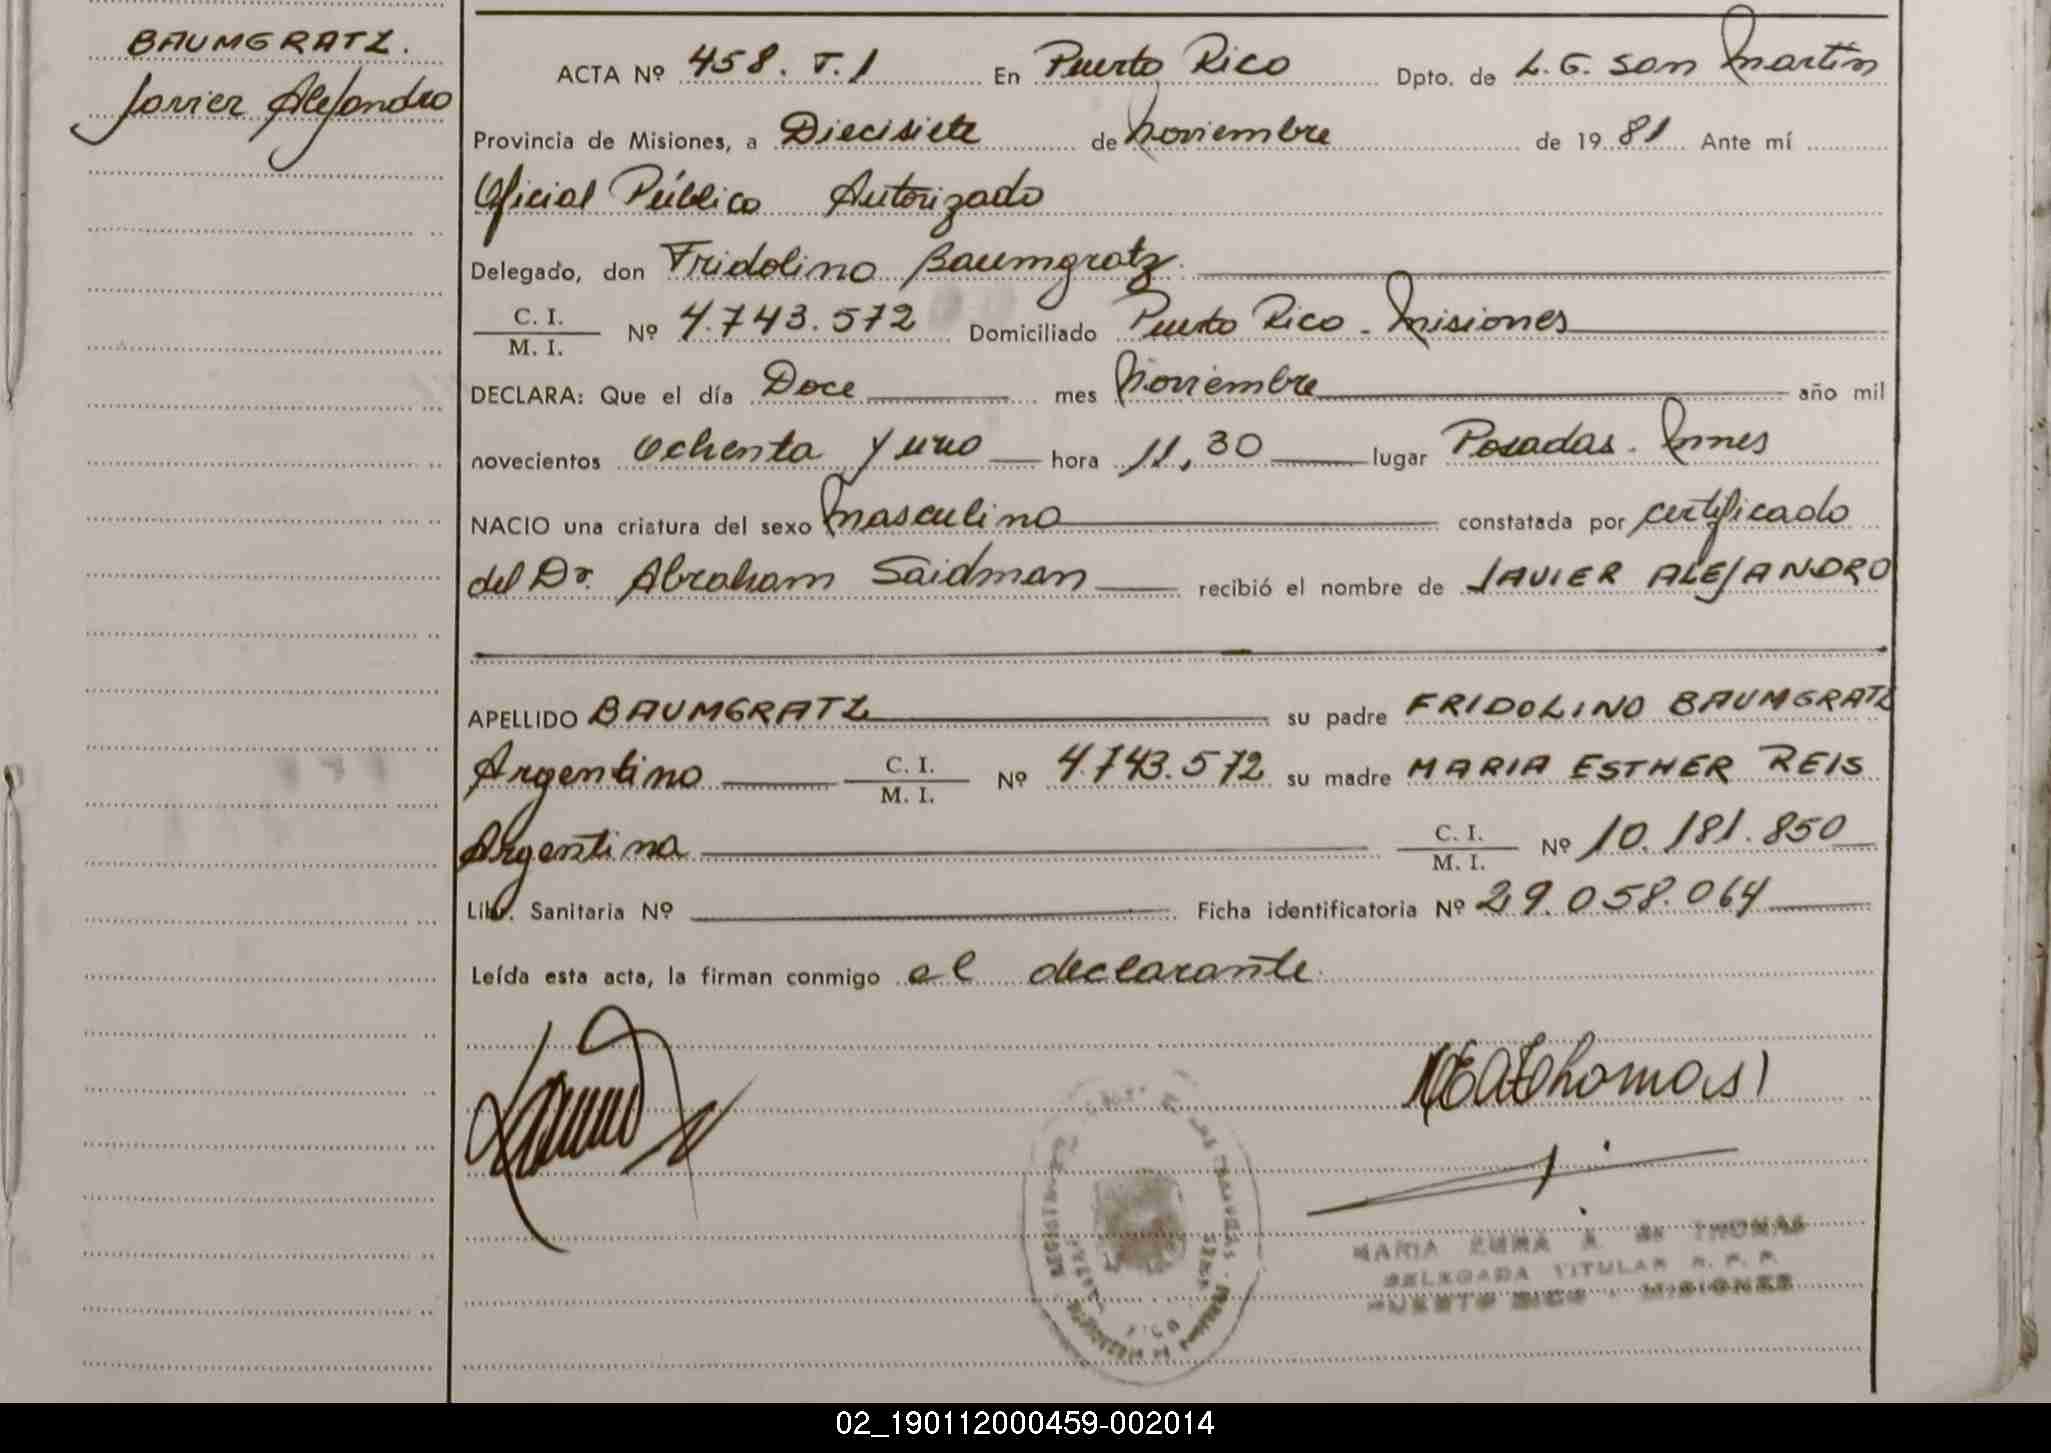 BAUMGRATZ.
Javier Alejandro
ACTA Nº 458. T. 1 En Puerto Rico Dpto. de L. G. San Martín
Provincia de Misiones, a Diecisiete de Noviembre de 19 81 Ante mí
Oficial Público Autorizado
Delegado, don Fridolino Baumgratz
C. I. / M. I. Nº 4.743.572 Domiciliado Puerto Rico - Misiones
DECLARA: Que el día Doce mes Noviembre año mil
novecientos Ochenta y uno hora 11,30 lugar Posadas. Mnes
NACIO una criatura del sexo Masculino constatada por certificado
del Dr. Abraham Saidman recibió el nombre de JAVIER ALEJANDRO
APELLIDO BAUMGRATZ su padre FRIDOLINO BAUMGRATZ
Argentino C. I. / M. I. Nº 4.743.572 su madre MARIA ESTHER REIS
Argentina C. I. / M. I. Nº 10.181.850
Libr. Sanitaria Nº Ficha identificatoria Nº 29.058.064
Leída esta acta, la firman conmigo el declarante.
MARIA A. de THOMAS
DELEGADA TITULAR R. P. P.
PUERTO RICO - MISIONES
02_190112000459-002014